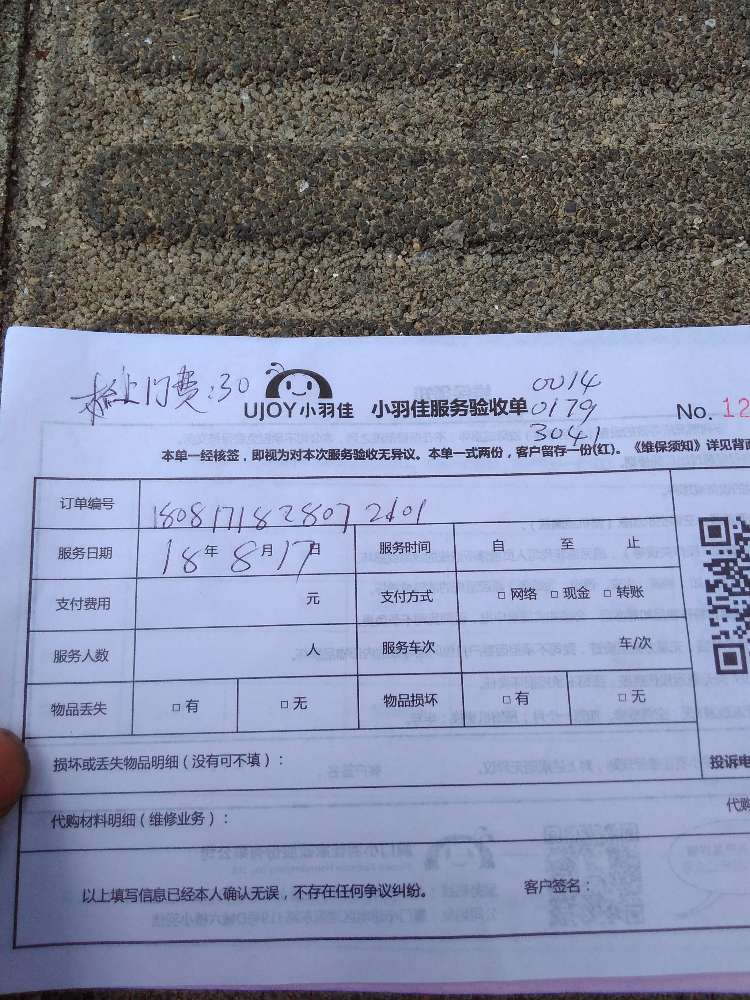 上门费:30
UJOY小羽佳 小羽佳服务验收单
0014
0179
3041
No. 12
本单一经核签，即视为对本次服务验收无异议。本单一式两份，客户留存一份(红)。《维保须知》详见背面
订单编号
服务日期 18年 8月17日 服务时间 自 至 止
支付费用 元 支付方式 □ 网络 □ 现金 □ 转账
服务人数 人 服务车次 车/次
物品丢失 □ 有 □ 无 物品损坏 □ 有 □ 无
损坏或丢失物品明细（没有可不填）： 投诉电
代购材料明细（维修业务）： 代购
以上填写信息已经本人确认无误，不存在任何争议纠纷。 客户签名：